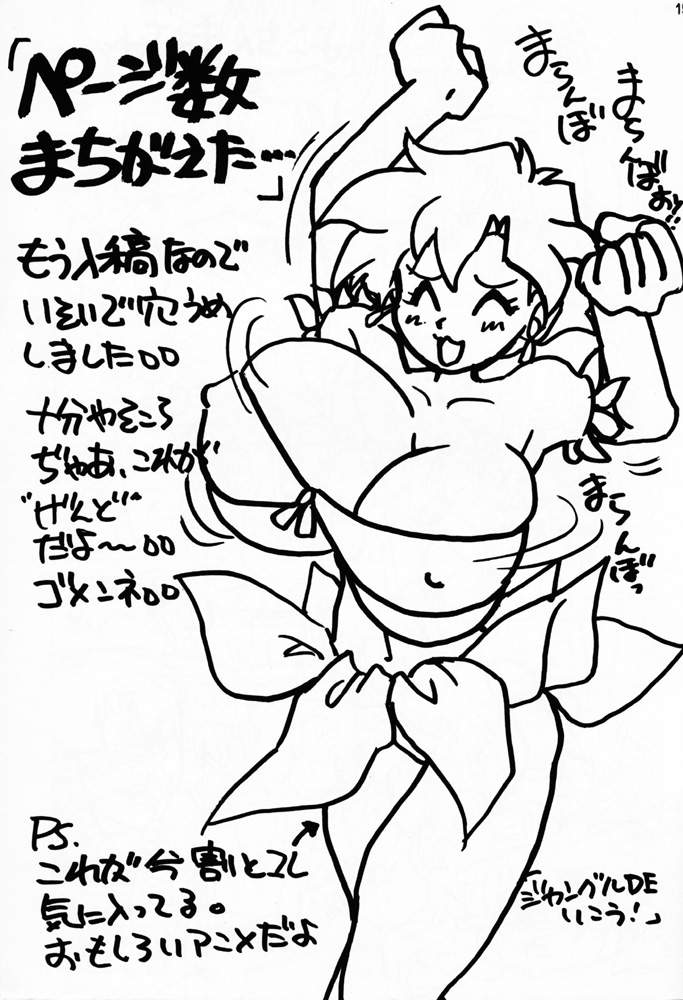 「ページ数
まちがえた…」
もう入稿なので
いそいで穴うめ
しました。。
十分やそころ
ぢゃあ、これが
"げんど"
だよ〜。。
ゴメンネ。。
まらんぼ
まらんばおッ!!
まらんぼっ
PS.
これが今割とコレ
気に入ってる。
おもしろいアニメだよ
「ジャングルDE
いこう!」